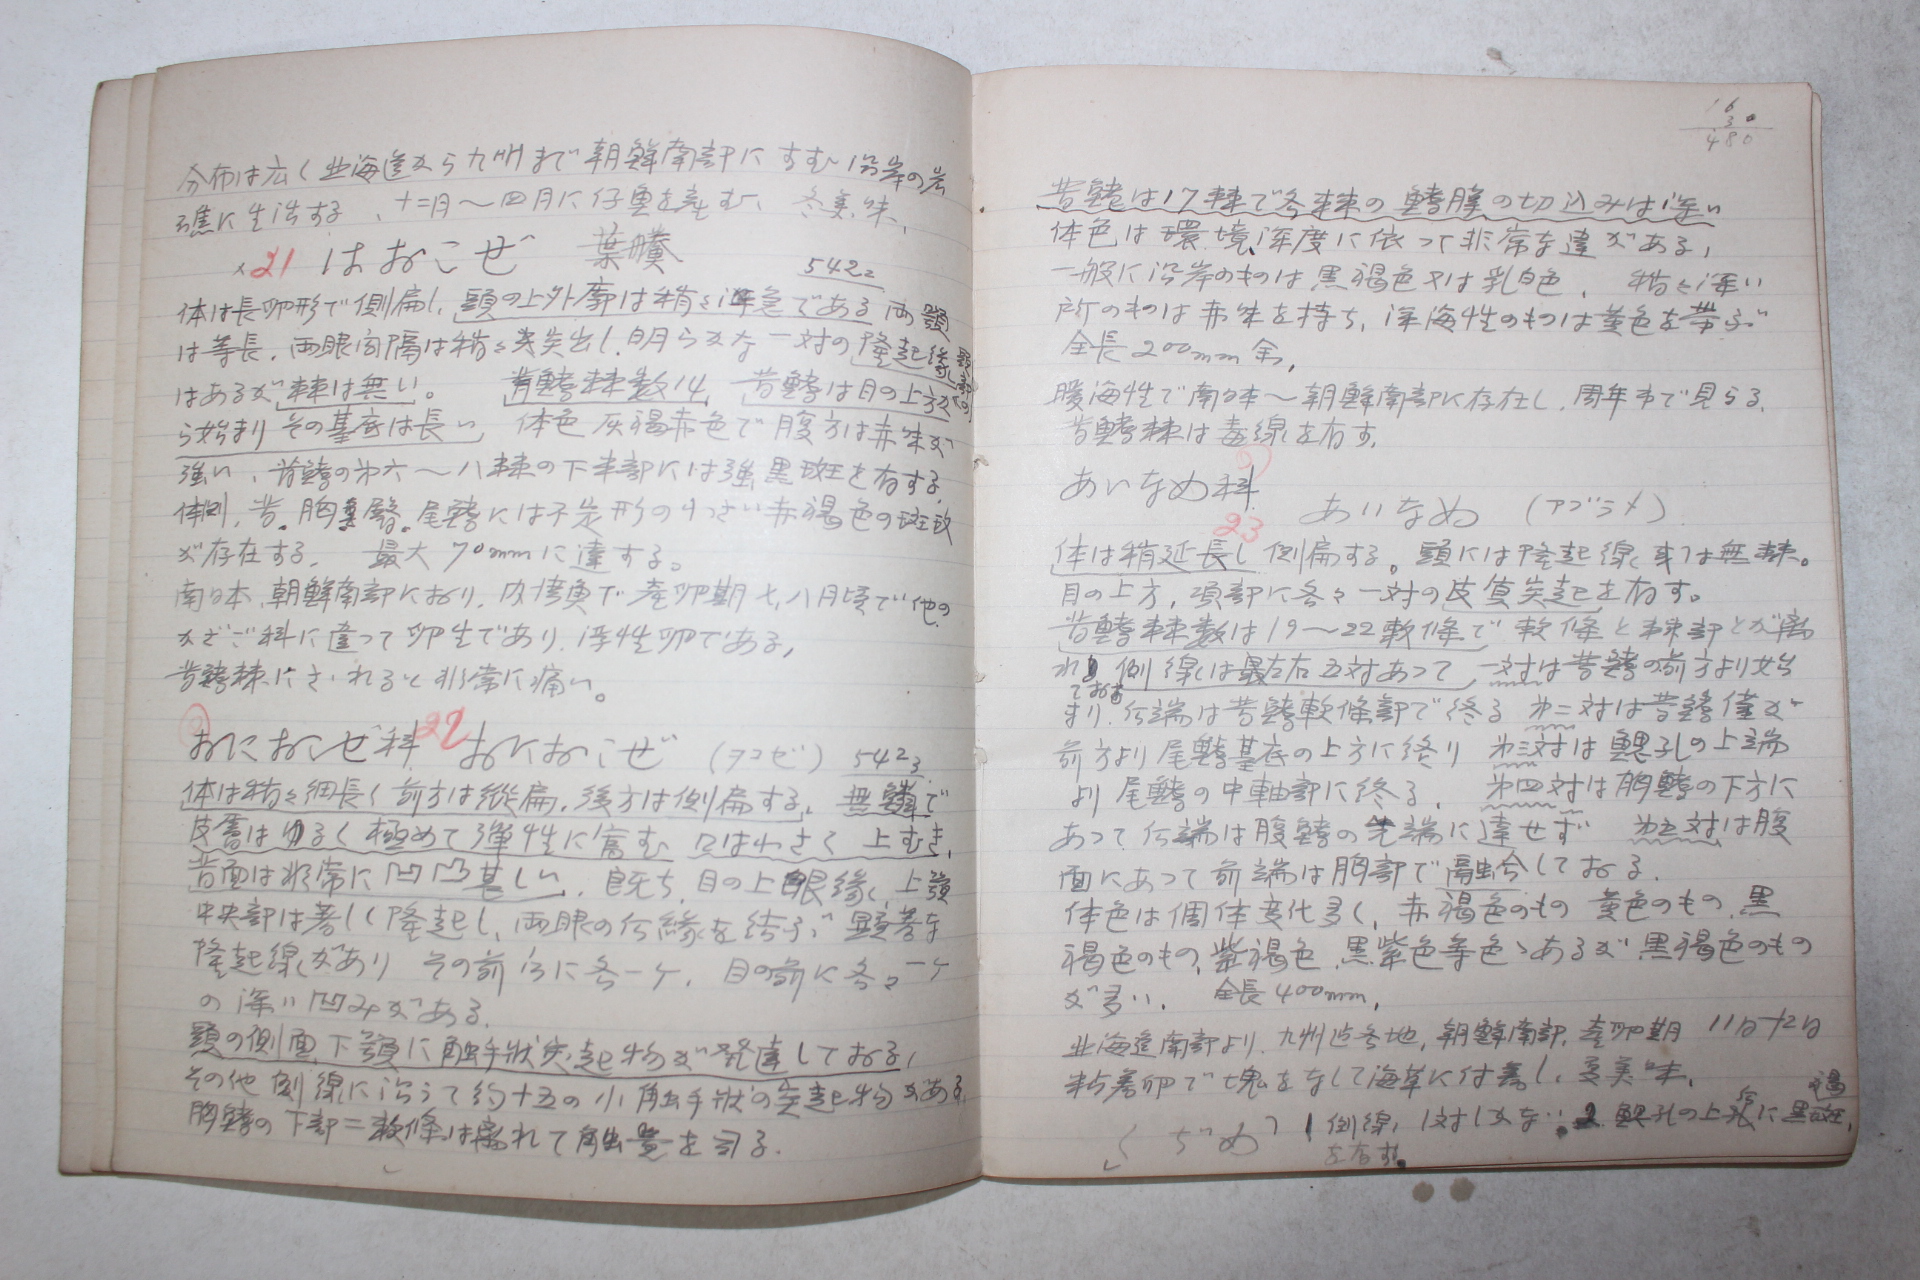 分布は広く北海道から九州まで朝鮮南部にすむ 沿岸の岩
礁に生活する、十二月～四月に仔魚を産む、冬美味、
×21 はおこぜ 葉鰧 5422
体は長卵形で側扁し、頭の上外廓は稍々急である 両顎
は等長、両眼間隔は稍々突出し、明らかな一対の隆起線
はあるが棘は無い。 背鰭棘数14、背鰭は目の上方か
ら始まり その基底は長い、体色灰褐赤色で腹方は赤味が
強い、背鰭の第六～八棘の下半部には強黒斑を有する、
体側、背、胸、臀、尾鰭には不定形の小さい赤褐色の斑紋
が存在する、 最大70mmに達する。
南日本、朝鮮南部におり、内湾魚で産卵期七、八月頃で他の
かさご科に違って卵生であり、浮性卵である、
背鰭棘にさゝれると非常に痛い。
おにおこぜ科 22 おにおこぜ (ヲコゼ) 5423
体は稍々細長く前方は縦扁、後方は側扁する、無鱗で
皮膚はゆるく極めて弾性に富む 口は小さく上むき、
背面は非常に凹凸甚しい、目の上眼縁、上顎
中央部は著しく隆起し、両眼の後縁を結ぶ顕著な
隆起線があり その前方に各一ヶ、目の前に各々一ヶ
の深い凹みがある、
頭の側面、下顎に触手状突起物が発達しておる、
その他側線に沿うて約十五の小触手状の突起物がある、
胸鰭の下部二軟條は離れて触覚を司る、
16
30
480
背鰭は17棘で各棘の鰭膜の切込みは深い
体色は環境、深度に依って非常な違がある、
一般に沿岸のものは黒褐色又は乳白色、稍々深い
所のものは赤味を持ち、深海性のものは黄色を帯ぶ
全長200mm余、
暖海性で南日本～朝鮮南部に存在し、周年市で見らる、
背鰭棘は毒線を有す、
あいなめ科 23 あいなめ (アブラメ)
体は稍延長し側扁する。頭には隆起線又は無棘。
目の上方、項部に各々一対の皮質突起を有す。
背鰭棘数は19～22軟條で 軟條と棘部とが離
れており 側線は左右五対あって、一対は背鰭の前方より始
まり、後端は背鰭軟條部で終る 第二対は背鰭僅か
前方より尾鰭基底の上方に終り 第三対は鰓孔の上端
より尾鰭の中軸部に終る、 第四対は胸鰭の下方に
あって後端は腹鰭の先端に達せず 第五対は腹
面にあって前端は胸部で融合しておる、
体色は個体変化多く、赤褐色のもの 黄色のもの、黒
褐色のもの、紫褐色、黒紫色等色々あるが 黒褐色のもの
が多い、 全長400mm、
北海道南部より、九州迄各地、朝鮮南部、産卵期 11月十2月
粘着卵で塊をなして海草に付着し、夏美味、
くぢめ 1 側線1対しかない 2 鰓孔の上後に黒褐斑
を有す。